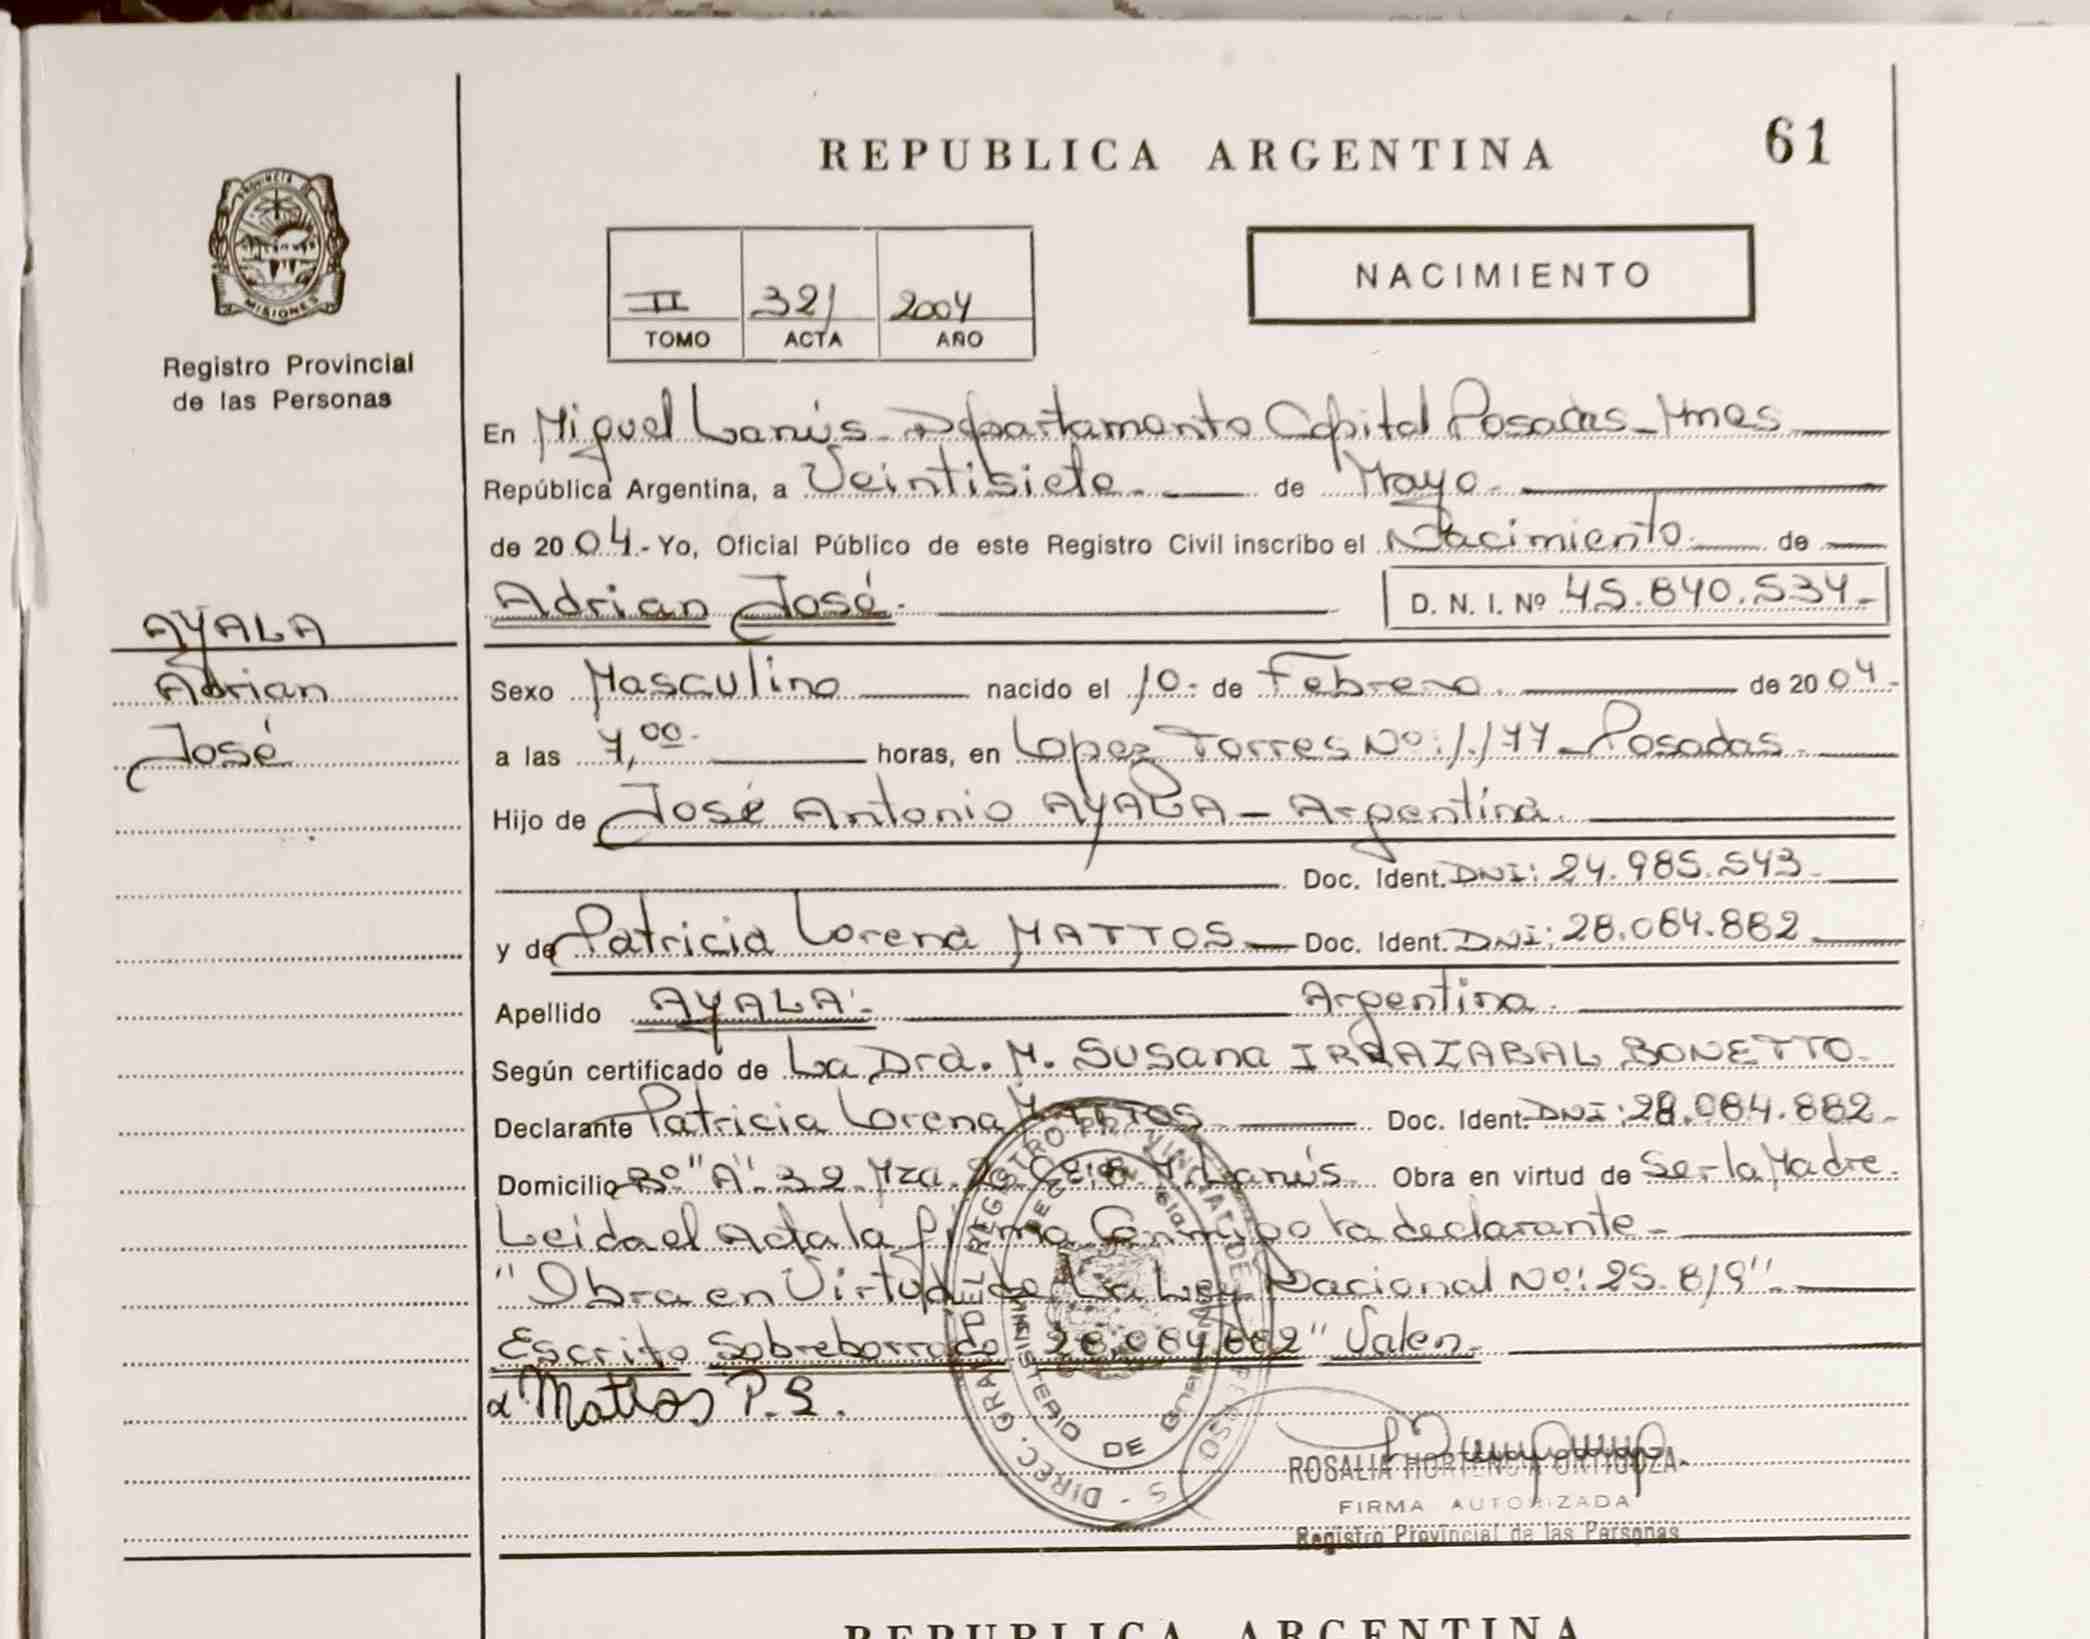 REPUBLICA ARGENTINA
61
PROVINCIA DE
MISIONES
Registro Provincial
de las Personas
II 321 2004
TOMO ACTA AÑO
NACIMIENTO
En Miguel Lanús - Departamento Capital Posadas - Mnes
República Argentina, a Veintisiete - de Mayo -
de 2004.- Yo, Oficial Público de este Registro Civil inscribo el Nacimiento de
Adrian José - D. N. I. Nº 45.840.534-
AYALA
Adrian
José
Sexo Masculino nacido el 10 - de Febrero de 2004-
a las 7,00- horas, en Lopez Torres No: 1.177 - Posadas
Hijo de José Antonio AYALA - Argentina
Doc. Ident. DNI: 24.985.543
y de Patricia Lorena MATTOS - Doc. Ident. DNI: 28.084.882
Apellido AYALA - Argentina
Según certificado de La Dra. M. Susana IRRAZABAL BONETTO
Declarante Patricia Lorena MATTOS Doc. Ident. DNI: 28.084.882-
Domicilio Bº "A" 32 Mza. Lanús Obra en virtud de Ser la Madre
Leida el Acta la firma Conmigo la declarante -
"Obra en Virtud de La Ley Nacional No: 25.819" -
Escrito Sobreborrado 28.084.882" Valen
Mattos P. L.
DIREC. GRAL DEL REGISTRO PROVINCIAL DE
MINISTERIO DE
ROSALIA HORTENCIA ORTIGOZA
FIRMA AUTORIZADA
Registro Provincial de las Personas
REPUBLICA ARGENTINA